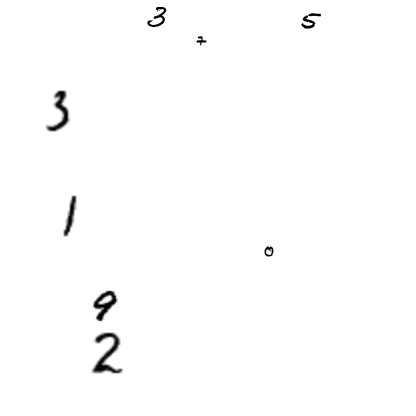 3 5
7
3
1
0
9
2